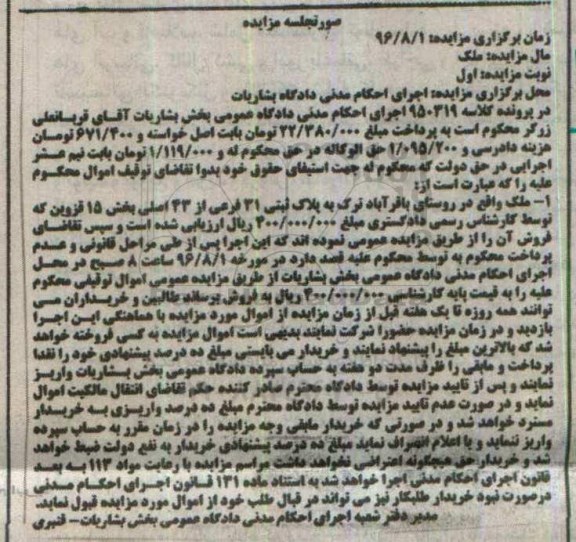 صورتجلسه مزایده
زمان برگزاری مزایده: ۹۶/۸/۱
مال مزایده: ملک
نوبت مزایده: اول
محل برگزاری مزایده: اجرای احکام مدنی دادگاه بشاریات
در پرونده کلاسه ۹۵۰۳۱۹ اجرای احکام مدنی دادگاه عمومی بخش بشاریات آقای قربانعلی
زرگر محکوم است به پرداخت مبلغ ۲۲/۳۸۰/۰۰۰ تومان بابت اصل خواسته و ۶۷۱/۴۰۰ تومان
هزینه دادرسی و ۱/۰۹۵/۲۰۰ حق الوکاله در حق محکوم له و ۱/۱۱۹/۰۰۰ تومان بابت نیم عشر
اجرایی در حق دولت که محکوم له جهت استیفای حقوق خود بدوا تقاضای توقیف اموال محکوم
علیه را که عبارت است از:
۱- ملک واقع در روستای باقرآباد ترک به پلاک ثبتی ۳۱ فرعی از ۴۳ اصلی بخش ۱۵ قزوین که
توسط کارشناس رسمی دادگستری مبلغ ۳۰۰/۰۰۰/۰۰۰ ریال ارزیابی شده است و سپس تقاضای
فروش آن را از طریق مزایده عمومی نموده اند که این اجرا پس از طی مراحل قانونی و عدم
پرداخت محکوم به توسط محکوم علیه قصد دارد در مورخه ۹۶/۸/۱ ساعت ۸ صبح در محل
اجرای احکام مدنی دادگاه عمومی بخش بشاریات از طریق مزایده عمومی اموال توقیفی محکوم
علیه را به قیمت پایه کارشناسی ۳۰۰/۰۰۰/۰۰۰ ریال به فروش برساند طالبین و خریداران می
توانند همه روزه تا یک هفته قبل از زمان مزایده از اموال مورد مزایده با هماهنگی این اجرا
بازدید و در زمان مزایده حضورا شرکت نمایند بدیهی است اموال مزایده به کسی فروخته خواهد
شد که بالاترین مبلغ را پیشنهاد نمایند و خریدار می بایستی مبلغ ده درصد پیشنهادی خود را نقدا
پرداخت و مابقی را ظرف مدت دو هفته به حساب سپرده دادگاه عمومی بخش بشاریات واریز
نمایند و پس از تایید مزایده توسط دادگاه محترم صادر کننده حکم تقاضای انتقال مالکیت اموال
نماید و در صورت عدم تایید مزایده توسط دادگاه محترم مبلغ ده درصد واریزی به خریدار
مسترد خواهد شد و در صورتی که خریدار مابقی وجه مزایده را در زمان مقرر به حساب سپرده
واریز ننماید و یا اعلام انصراف نماید مبلغ ده درصد پیشنهادی خریدار به نفع دولت ضبط خواهد
شد و خریدار حق هیچگونه اعتراضی نخواهد داشت مراسم مزایده با رعایت مواد ۱۱۳ به بعد
قانون اجرای احکام مدنی اجرا خواهد شد به استناد ماده ۱۳۱ قانون اجرای احکام مدنی
درصورت نبود خریدار طلبکار نیز می تواند در قبال طلب خود از اموال مورد مزایده قبول نماید.
مدیر دفتر شعبه اجرای احکام مدنی دادگاه عمومی بخش بشاریات- قنبری